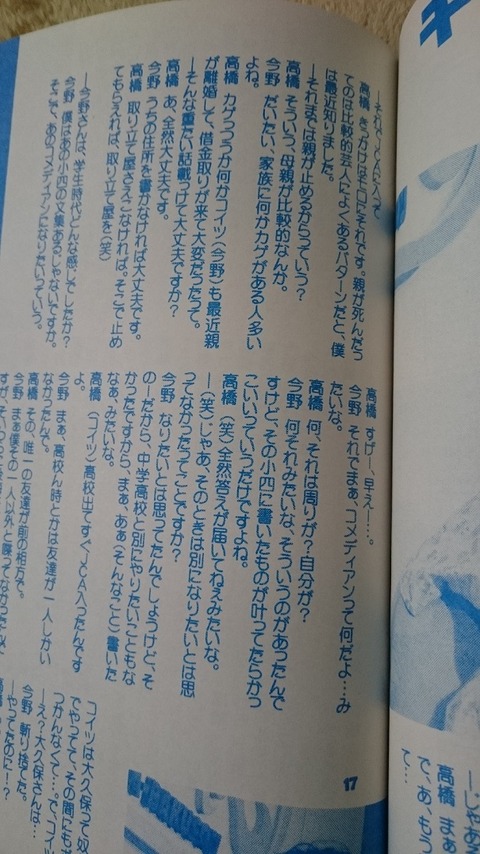 ―それで、JCAに入って
高橋 きっかけはモロにそれです。親が死んだっ
てのは比較的芸人によくあるパターンだと、僕
は最近知りました。
―それまでは親が止めるからっていう?
高橋 そういう、母親が比較的なんか。
今野 だいたい、家族に何かカゲがある人多い
よね。
高橋 カゲっつうか何かコイツ(今野)も最近親
が離婚して、借金取りが来て大変だったって。
―そんな重たい話載っけて大丈夫ですか?
高橋 あ、全然大丈夫です。
今野 うちの住所を書かなければ大丈夫です。
高橋 取り立て屋さえこなければ。そこで止め
てもらえれば、取り立て屋を(笑)
―今野さんは、学生時代どんな感じでしたか?
今野 僕はあの小四の文集あるじゃないですか。
そこで、あのコメディアンになりたいっていう。
高橋 すげー、早えー!…。
今野 それでまぁ、コメディアンって何だよ…み
たいな。
高橋 何、それは周りが?自分が?
今野 何それみたいな、そういうのがあったんで
すけど、その小四に書いたものが叶ってたらかっ
こいいっていうだけですよね。
高橋 (笑)全然答えが届いてねえみたいな。
―(笑)じゃあ、そのときは別になりたいとは思
ってなかったってことですか?
今野 なりたいとは思ってたんでしょうけど、そ
の―だから、中学高校と別にやりたいこともな
かったですから、まぁ、あぁ(そんなこと)書いた
なぁ、みたいな。
高橋 (コイツ)高校出てすぐJCA入ったんです
よ。
今野 まぁ、高校ん時とかは友達が一人しかい
なかったんで。
高橋 その、唯一の友達が前の相方で。
今野 まぁ僕その一人以外と喋ってなかったんで
コイツは大久保って奴
でやってて、その間にもさ
つかんなくて…で、コイツ
―え?大久保さんは…
今野 斬り捨てた。
―やってたのに!?
高橋
17
キ
―じゃあ
高橋 まぁ
で、あ、もう
て…